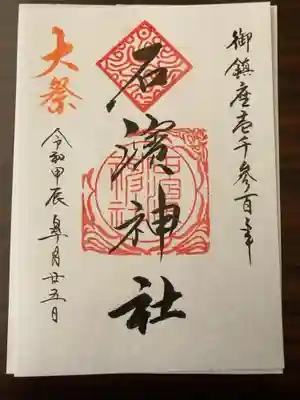 御鎮座壱千参百年
石濱神社
大祭
令和甲辰皐月廿五日